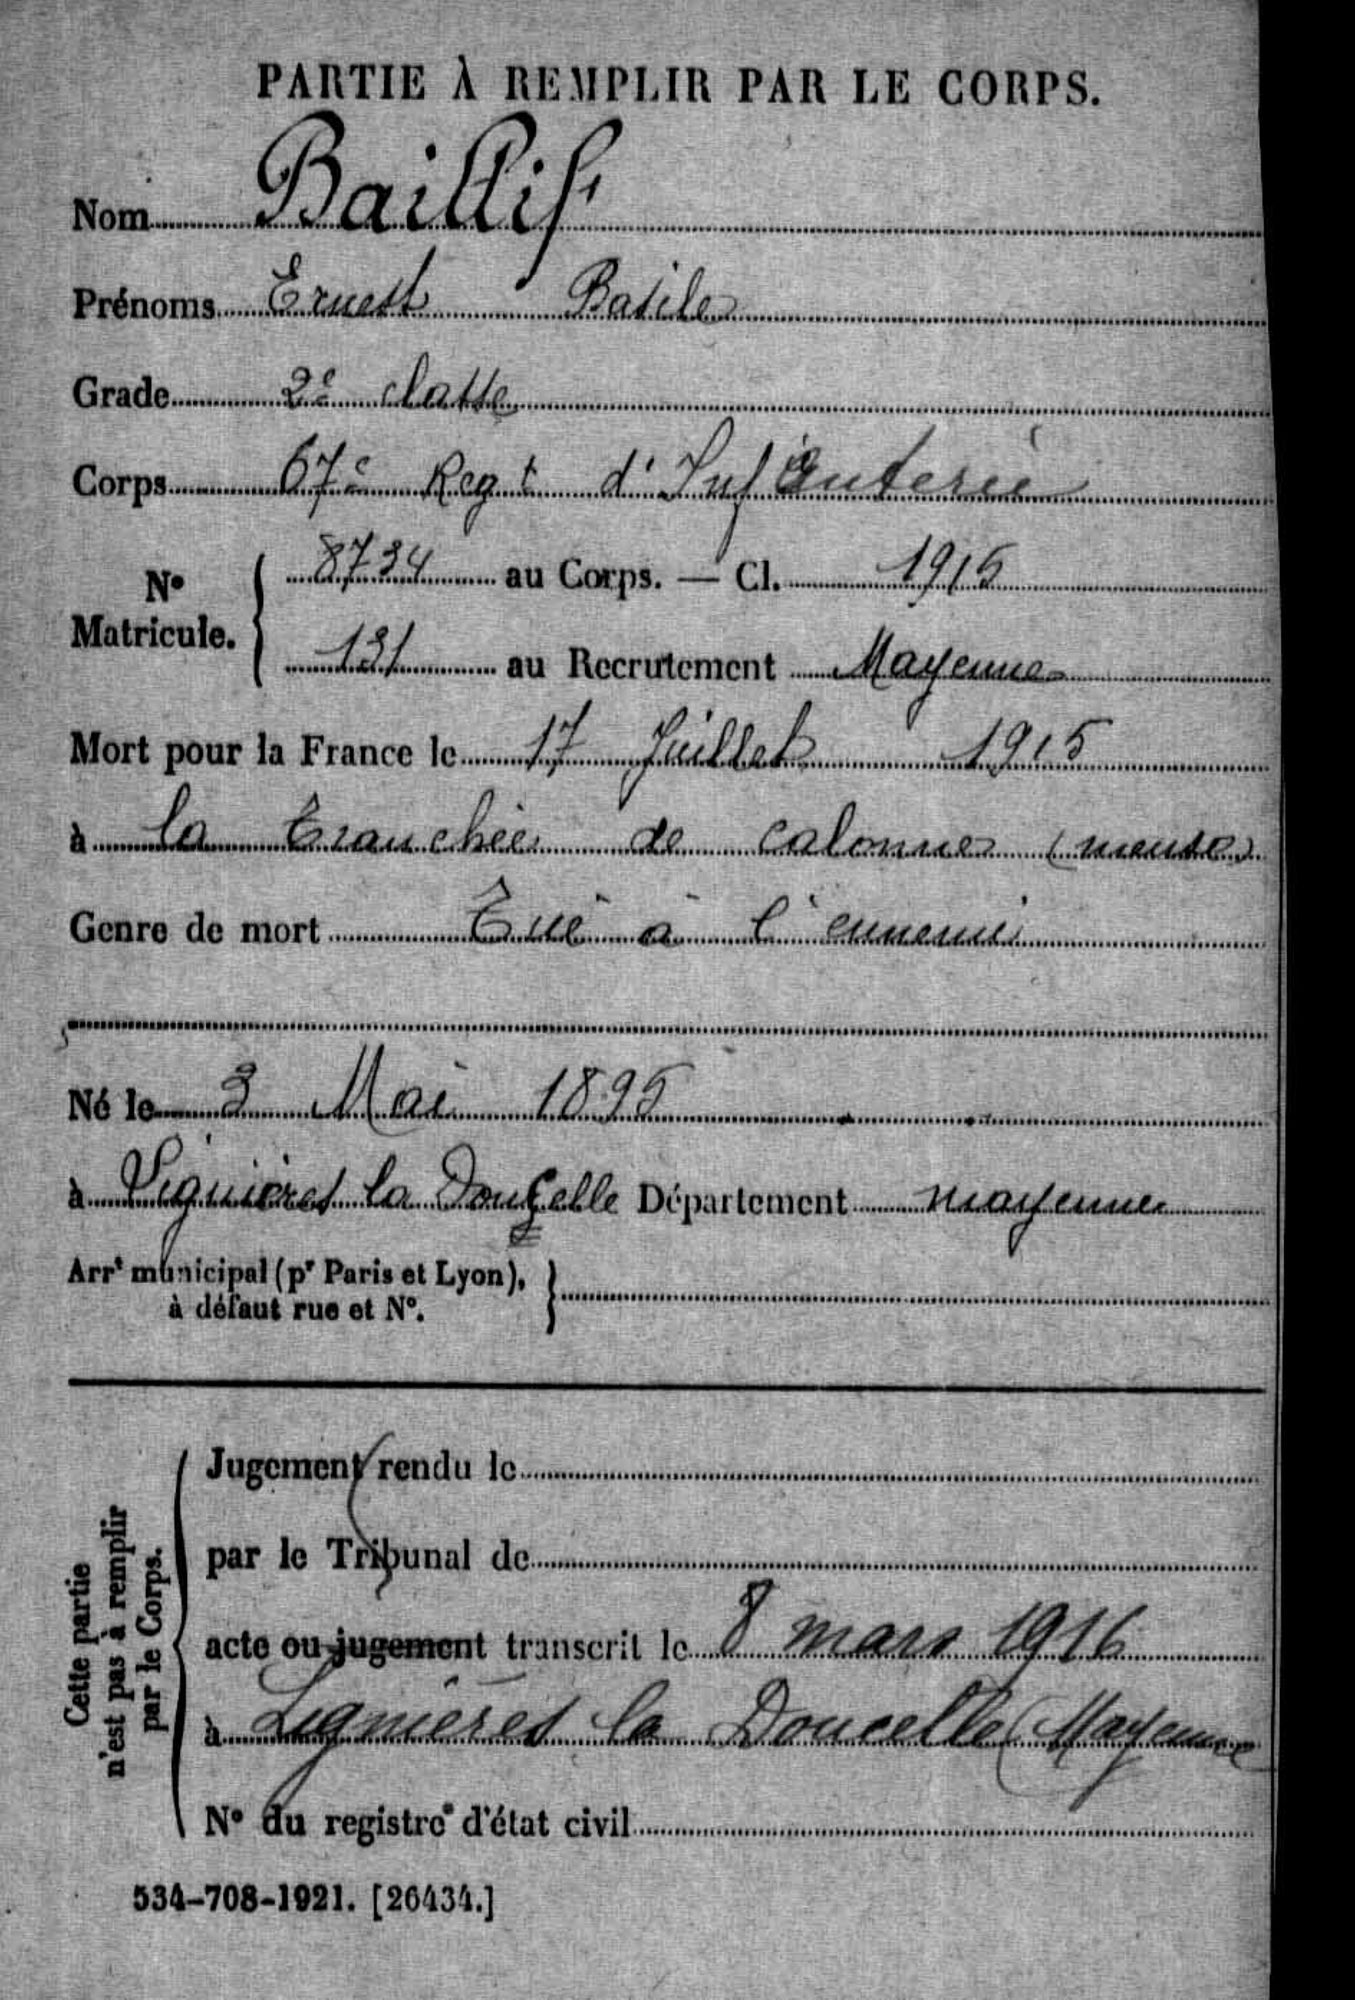 PARTIE À REMPLIR PAR LE CORPS.
Nom Baillif
Prénoms Ernest Basile
Grade 2e classe
Corps 67e Regt d'Infanterie
No Matricule. 8734 au Corps. — Cl. 1915
131 au Recrutement Mayenne
Mort pour la France le 17 Juillet 1915
à la Tranchée de Calonne (Meuse)
Genre de mort Tué à l'ennemi
Né le 3 Mai 1895
à Lignières la Doucelle Département Mayenne
Arrt municipal (pr Paris et Lyon), à défaut rue et No.
Cette partie n'est pas à remplir par le Corps.
Jugement rendu le
par le Tribunal de
acte ou jugement transcrit le 8 mars 1916
à Lignières la Doucelle (Mayenne
No du registre d'état civil
534-708-1921. [26434.]